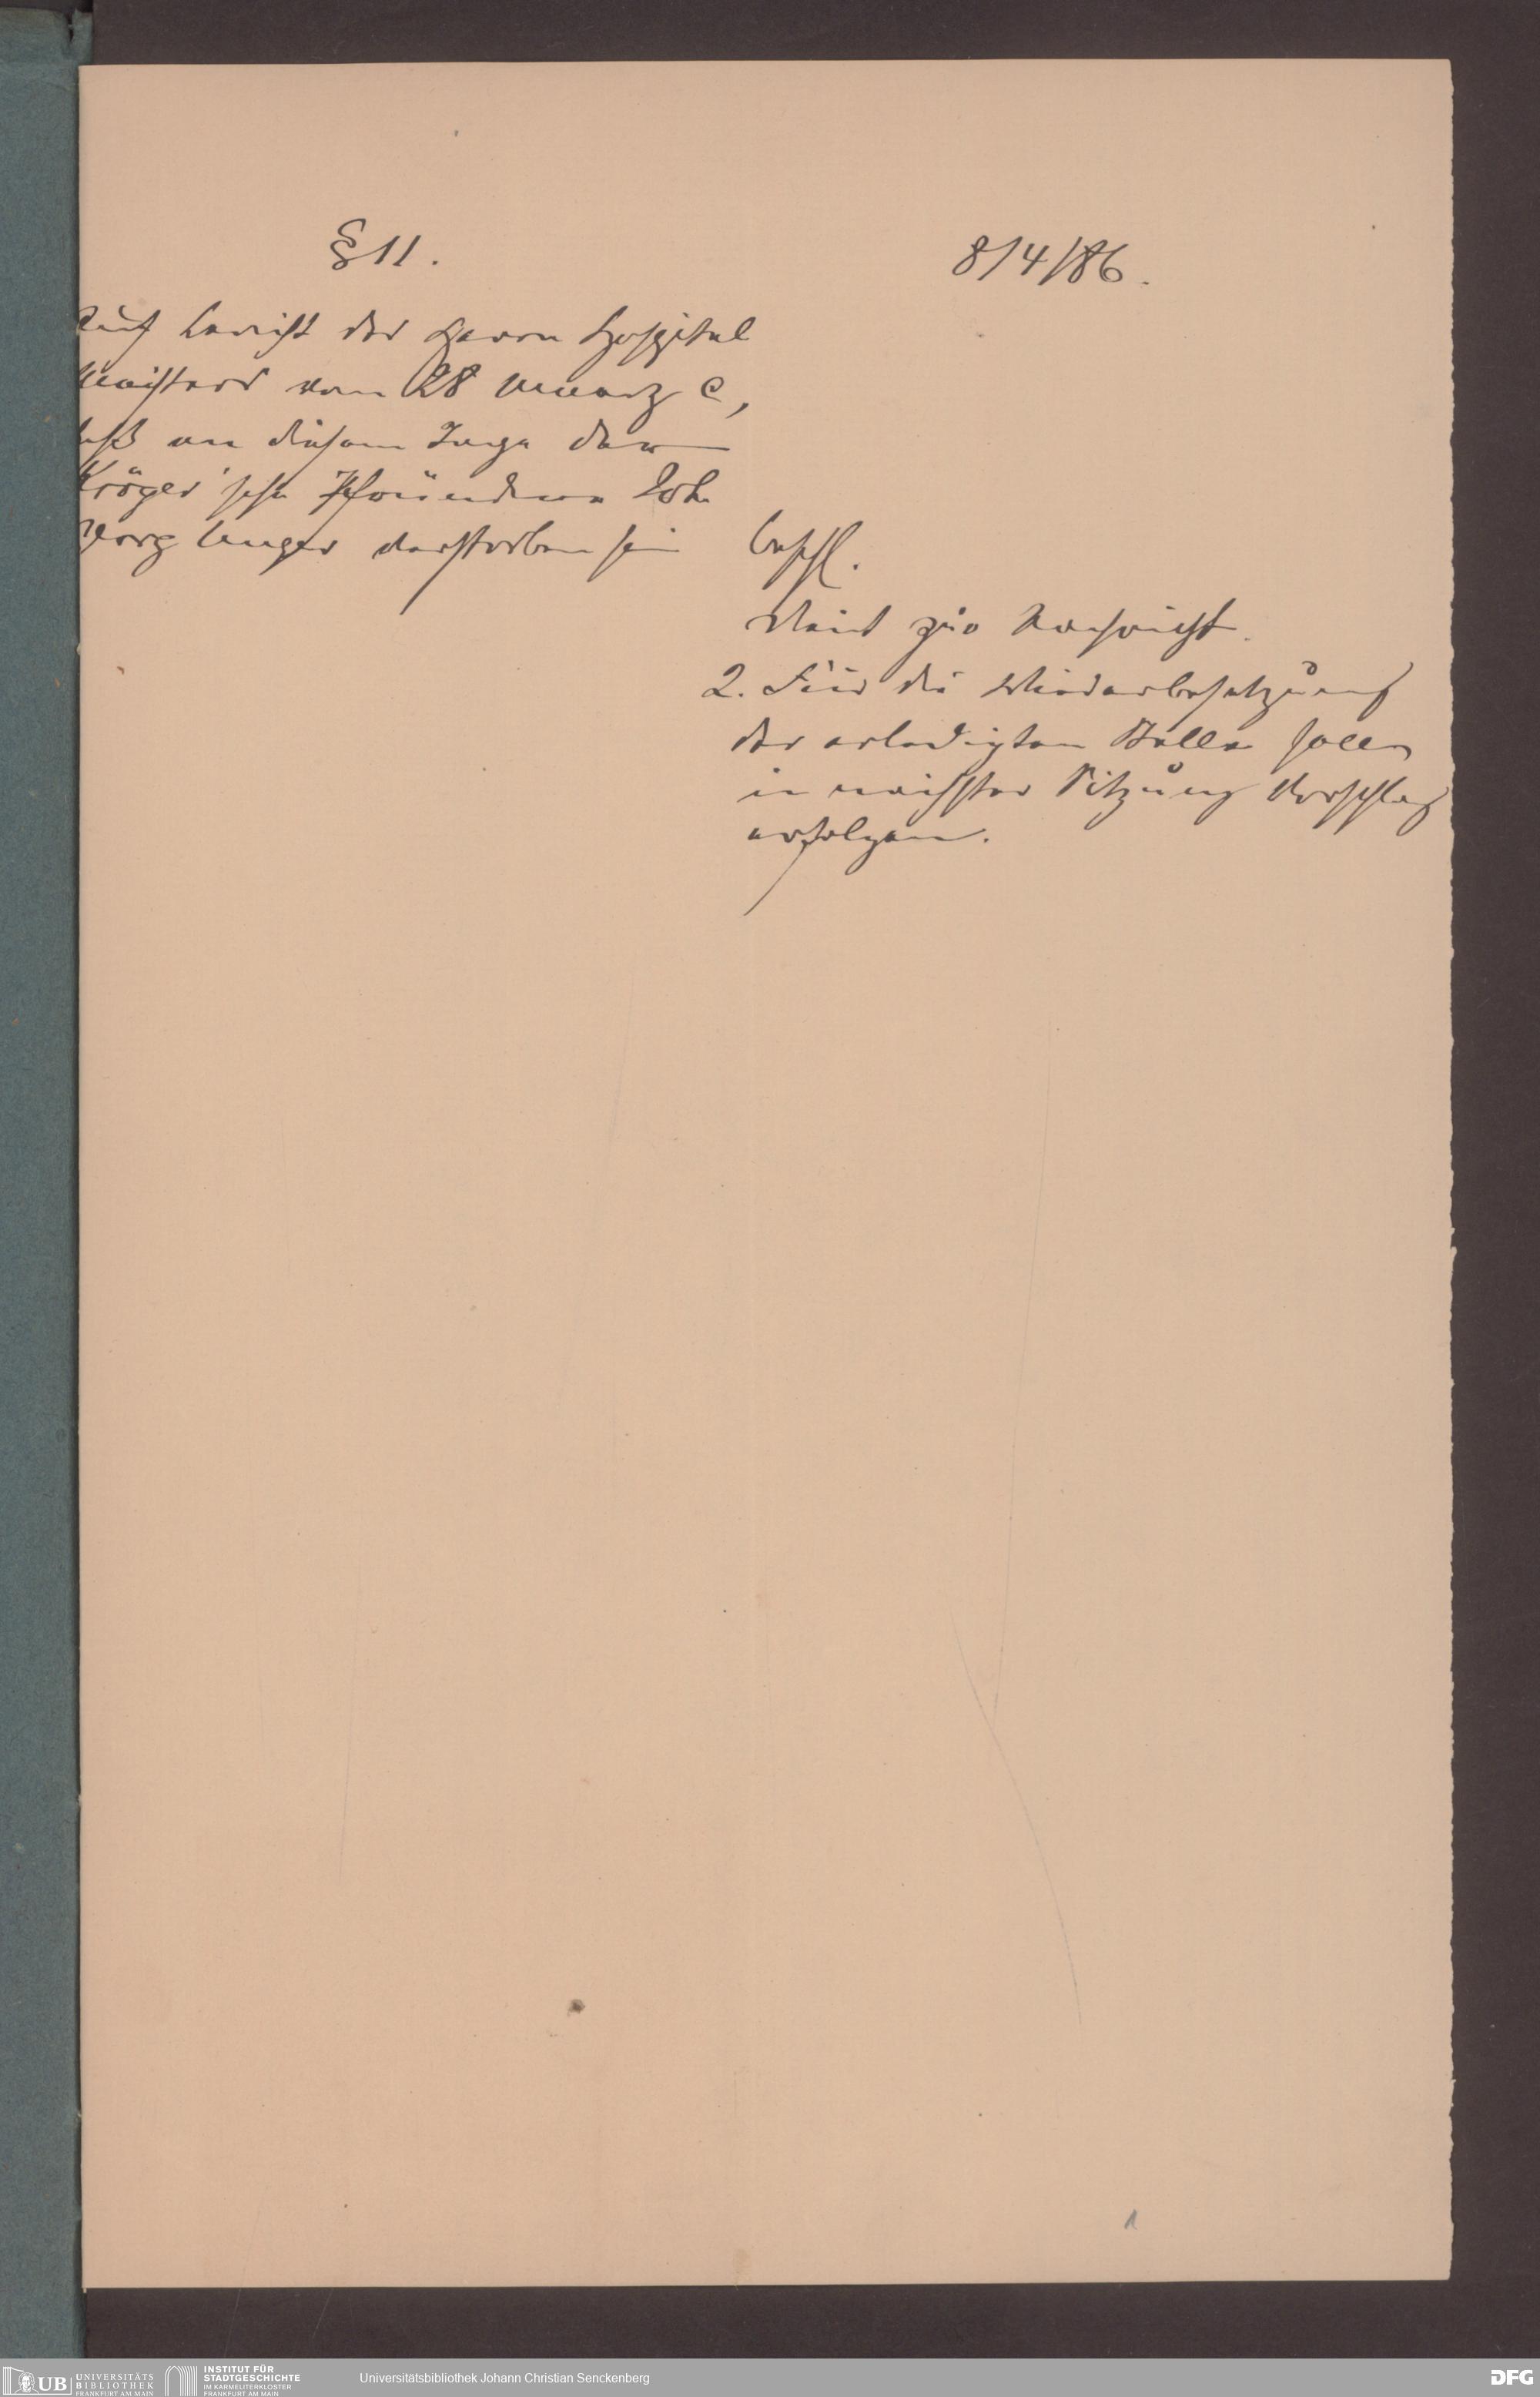 § 11.
8/4/86.
Auf Bericht des Herrn Hospital
Meisters vom 28 Maerz c,
daß an diesem Tage der
Kröger'sche Pfründner Joh
Georg Unger verstorben sei
Beschl.
Dient zur Nachricht.
2. Für die Wiederbesetzung
der erledigten Stelle soll
in nächster Sitzung Vorschlag
erfolgen.
1
UB UNIVERSITÄTS
BIBLIOTHEK
FRANKFURT AM MAIN
INSTITUT FÜR
STADTGESCHICHTE
IM KARMELITERKLOSTER
FRANKFURT AM MAIN
Universitätsbibliothek Johann Christian Senckenberg
DFG